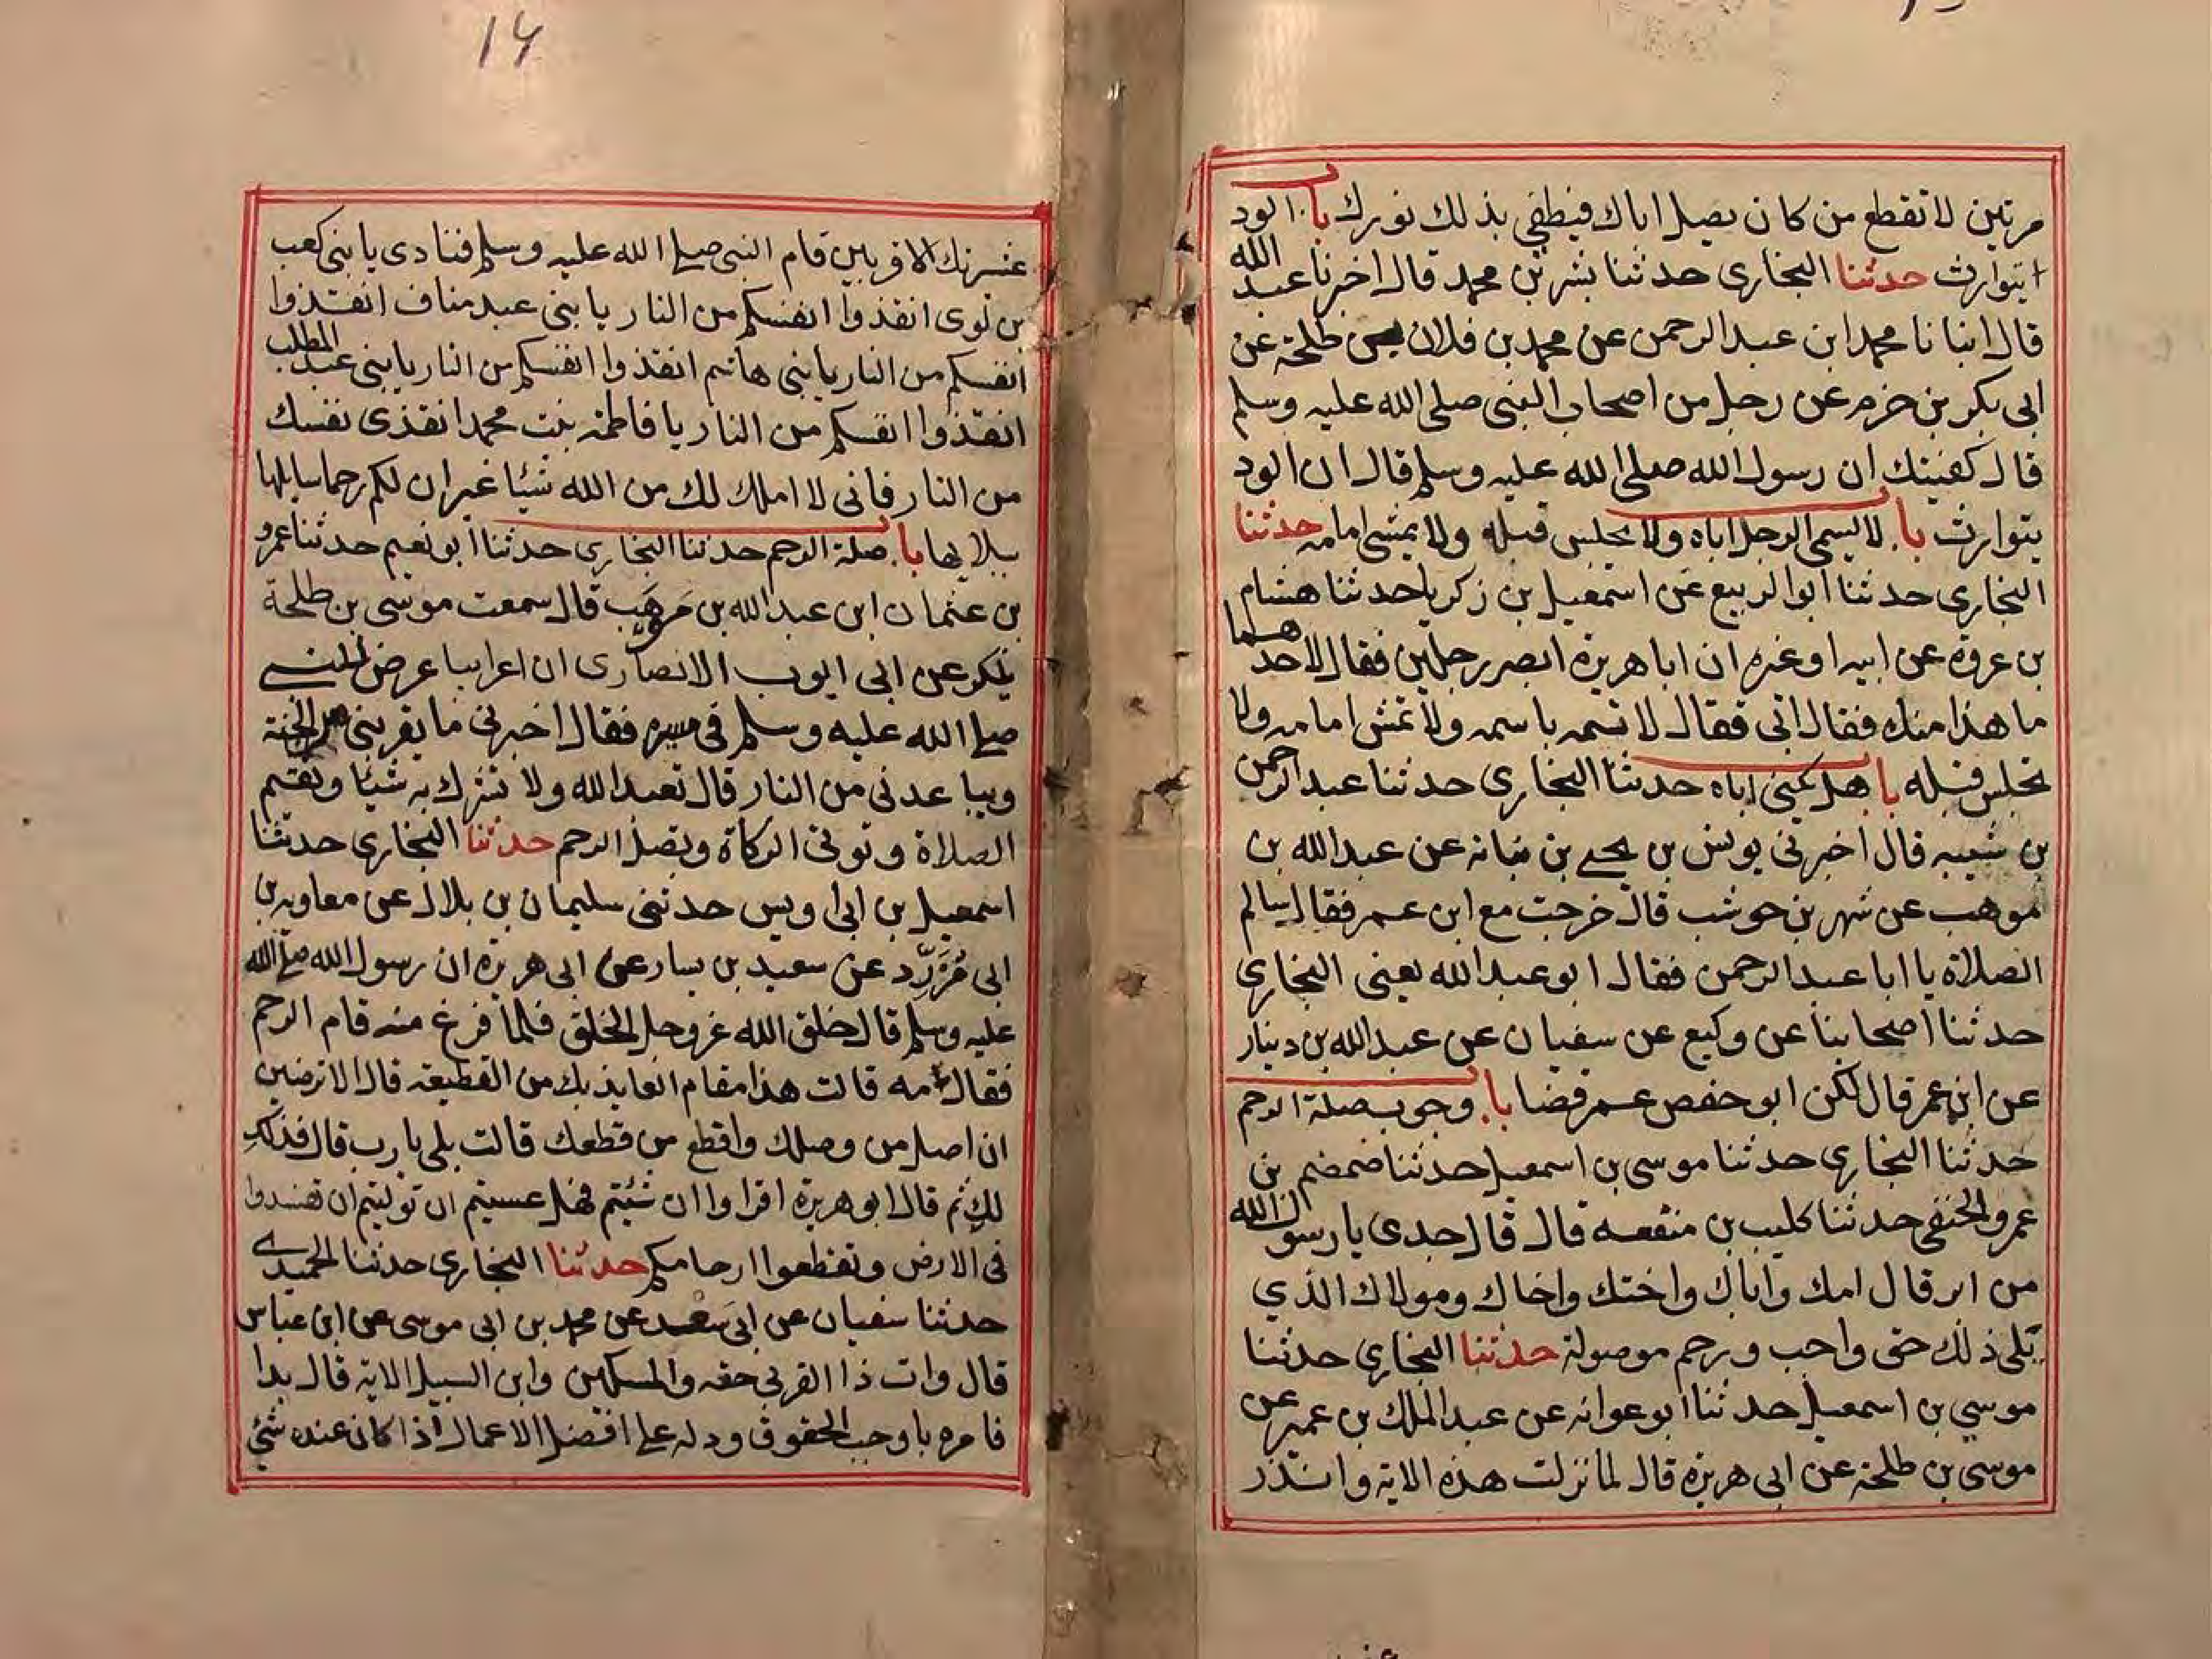 مرتين لا تقطع من كان يصل اباك فيطفي بذلك نورك باب الود
ايتوارث حدثنا البخارى حدثنا بشر بن محمد قال اخبرنا عبد الله
قال انبانا محمد ابن عبد الرحمن عن محمد بن فلان بن طلحة عن
ابى بكر بن حزم عن رجل من اصحاب النبى صلى الله عليه وسلم
قال كفيتك ان رسول الله صلى الله عليه وسلم قال ان الود
يتوارث باب لا يسمى الرجل اباه ولا يجلس قبله ولا يمشى امامه حدثنا
البخارى حدثنا ابو الربيع عن اسمعيل بن زكريا حدثنا هشام
بن عروة عن ابيه او غيره ان ابا هريرة ابصر رجلين فقال لاحدهما
ما هذا منك فقال ابى فقال لا تسمه باسمه ولا تمش امامه ولا
تجلس قبله باب هل يكنى اباه حدثنا البخارى حدثنا عبد الرحمن
بن شيبه قال اخبرنى يونس بن يحيى بن نباته عن عبد الله بن
موهب عن شهر بن حوشب قال خرجت مع ابن عمر فقال سالم
الصلاة يا ابا عبد الرحمن فقال ابو عبد الله يعنى البخارى
حدثنا اصحابنا عن وكيع عن سفيان عن عبد الله بن دينار
عن ابن عمر قال لكن ابو حفص عمر قضا باب وجوب صلة الرحم
حدثنا البخارى حدثنا موسى بن اسمعيل حدثنا ضمضم بن
عمرو الحنفى حدثنا كليب بن منفعه قال قال جدى يا رسول الله
من ابر قال امك واباك واختك واخاك ومولاك الذي
يلى ذلك حق واجب ورحم موصولة حدثنا البخارى حدثنا
موسي بن اسمعيل حدثنا ابو عوانه عن عبد الملك بن عمير عن
موسى بن طلحة عن ابى هريرة قال لما نزلت هذه الاية وانذر
14
عشيرتك الاقربين قام النبى صلى الله عليه وسلم فنادى يا بنى كعب
بن لوى انقذوا انفسكم من النار يا بنى عبد مناف انقذوا
انفسكم من النار يا بنى هاشم انقذوا انفسكم من النار يا بنى عبد المطلب
انقذوا انفسكم من النار يا فاطمة بنت محمد انقذى نفسك
من النار فانى لا املك لك من الله شيئا غير ان لكم رحما سابلها
ببلالها باب صلة الرحم حدثنا البخارى حدثنا ابو نعيم حدثنا عمرو
بن عثمان ابن عبد الله بن موهب قال سمعت موسى بن طلحة
يذكر عن ابى ايوب الانصارى ان اعرابيا عرض للنبى
صلى الله عليه وسلم فى مسيره فقال اخبرنى ما يقربنى من الجنة
ويباعدنى من النار قال تعبد الله ولا تشرك به شيئا وتقيم
الصلاة وتوتى الزكاة وتصل الرحم حدثنا البخارى حدثنا
اسمعيل بن ابى اويس حدثنى سليمان بن بلال عن معاويه بن
ابى مُزَرِّد عن سعيد بن يسار عن ابى هريرة ان رسول الله صلى الله
عليه وسلم قال خلق الله عز وجل الخلق فلما فرغ منه قام الرحم
فقال مه قالت هذا مقام العايذ بك من القطيعه قال الا ترضين
ان اصل من وصلك واقطع من قطعك قالت بلى يا رب قال فذلك
لك ثم قال ابو هريرة اقراوا ان شئتم فهل عسيتم ان توليتم ان تفسدوا
فى الارض وتقطعوا ارحامكم حدثنا البخارى حدثنا الحميدي
حدثنا سفيان عن ابى سَعْد عن محمد بن ابى موسى عن ابن عباس
قال وات ذا القربى حقه والمسكين وابن السبيل الاية قال بدا
فامره باوجب الحقوق ودله على افضل الاعمال اذا كان عنده شئ